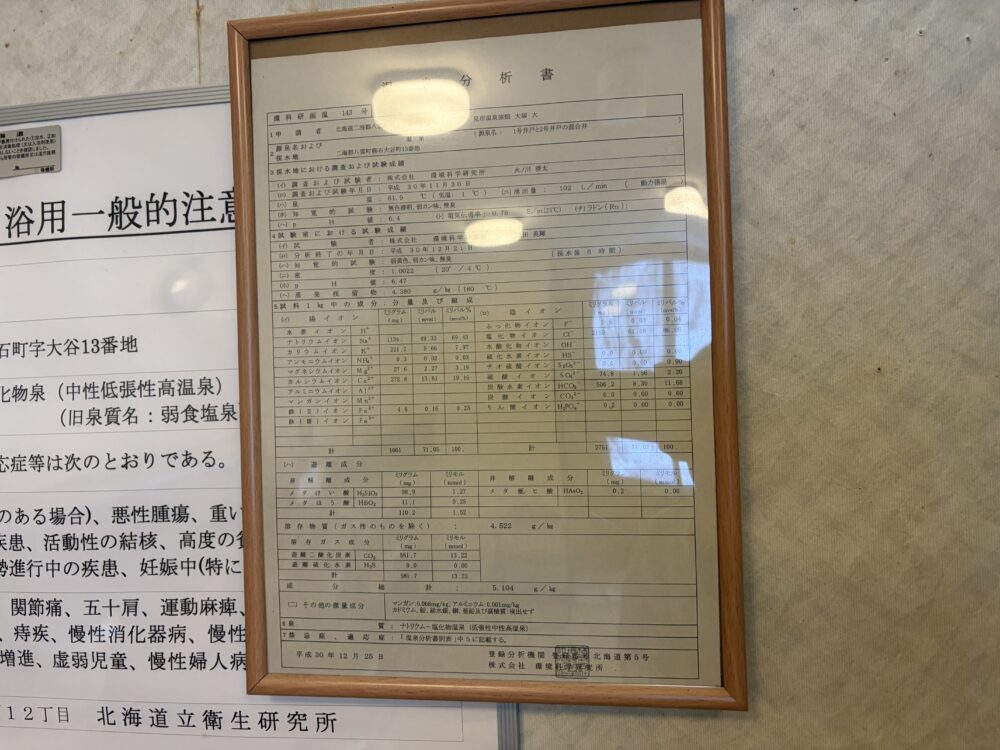 分析書
衛科研画温 143号
1 申請者 北海道二海郡八 見市温泉旅館 大塚 大
2 源泉名および採水地 (源泉名: 1号井戸と2号井戸の混合井)
二海郡八雲町熊石大谷町13番地
3 採水地における調査および試験成績
(イ) 調査および試験者: 株式会社 環境科学研究所
(ロ) 調査および試験年月日: 平成 30年11月30日
(ハ) 泉温: 61.9 ℃ (気温: 1 ℃) (ニ) 湧出量: 102 L/min (動力揚湯)
(ホ) 知覚的試験: 無色透明、弱カン味、無臭
(ヘ) pH値: 6.4 (ト) 電気伝導率: 0.76 S/m(25℃) (チ) ラドン(Rn):
4 試験室における試験成績
(イ) 試験者: 株式会社 環境科学
(ロ) 分析終了の年月日: 平成 30年12月21日
(ハ) 知覚的試験: 弱黄色、弱カン味、無臭 (採水後6時間)
(ニ) 密度: 1.0022 (20°/4℃)
(ホ) pH値: 6.47
(ヘ) 蒸発残留物: 4.380 g/kg (180℃)
5 試料1kg中の成分・分量及び組成
(イ) 陽イオン ミリグラム(mg) ミリバル(mval) ミリバル%(mval%) (ロ) 陰イオン ミリグラム(mg) ミリバル(mval) ミリバル%(mval%)
水素イオン H⁺ ふっ化物イオン F⁻ 0.03 0.04
ナトリウムイオン Na⁺ 1134. 49.33 69.43 塩化物イオン Cl⁻
カリウムイオン K⁺ 221.2 5.66 7.97 水酸化物イオン OH⁻
アンモニウムイオン NH₄⁺ 0.3 0.02 0.03 硫化水素イオン HS⁻ 0.0 0.00 0.00
マグネシウムイオン Mg²⁺ 27.6 2.27 3.19 チオ硫酸イオン S₂O₃²⁻ 0.0 0.00 0.00
カルシウムイオン Ca²⁺ 272.8 13.61 19.15 硫酸イオン SO₄²⁻ 74.8 1.56 2.20
アルミニウムイオン Al³⁺ 炭酸水素イオン HCO₃⁻ 506.2 8.30 11.68
マンガンイオン Mn²⁺ 炭酸イオン CO₃²⁻ 0.0 0.00 0.00
鉄(Ⅱ)イオン Fe²⁺ 4.5 0.16 0.23 りん酸イオン H₂PO₄⁻ 0.2 0.00 0.00
鉄(Ⅲ)イオン Fe³⁺
計 1661 71.05 100. 計 100
(ハ) 遊離成分
非解離成分 ミリグラム(mg) ミリモル(mmol) 非解離成分 ミリグラム(mg) ミリモル(mmol)
メタけい酸 H₂SiO₃ 98.9 1.27 メタ亜ヒ酸 HAsO₂ 0.2 0.00
メタほう酸 HBO₂ 11.1 0.25
計 110.2 1.52
溶存物質(ガス性のものを除く): 4.522 g/kg
溶存ガス成分 ミリグラム(mg) ミリモル(mmol)
遊離二酸化炭素 CO₂ 581.7 13.22
遊離硫化水素 H₂S 0.0 0.00
計 581.7 13.22
成分総計 5.104 g/kg
(ニ) その他の微量成分 マンガン:0.068mg/kg、アルミニウム:0.001mg/kg
カドミウム、鉛、総水銀、銅、亜鉛及び腐植質:検出せず
6 泉質: ナトリウム-塩化物温泉 (低張性中性高温泉)
7 禁忌症、適応症: 「温泉分析書別表」中5に記載する。
平成30年12月25日 登録分析機関 登録番号 北海道第5号
株式会社 環境科学研究所
浴用一般的注意
石町字大谷13番地
化物泉(中性低張性高温泉)
(旧泉質名:弱食塩泉
応症等は次のとおりである。
のある場合)、悪性腫瘍、重い
疾患、活動性の結核、高度の貧
勢進行中の疾患、妊娠中(特に
関節痛、五十肩、運動麻痺、
、痔疾、慢性消化器病、慢性
増進、虚弱児童、慢性婦人病
12丁目 北海道立衛生研究所